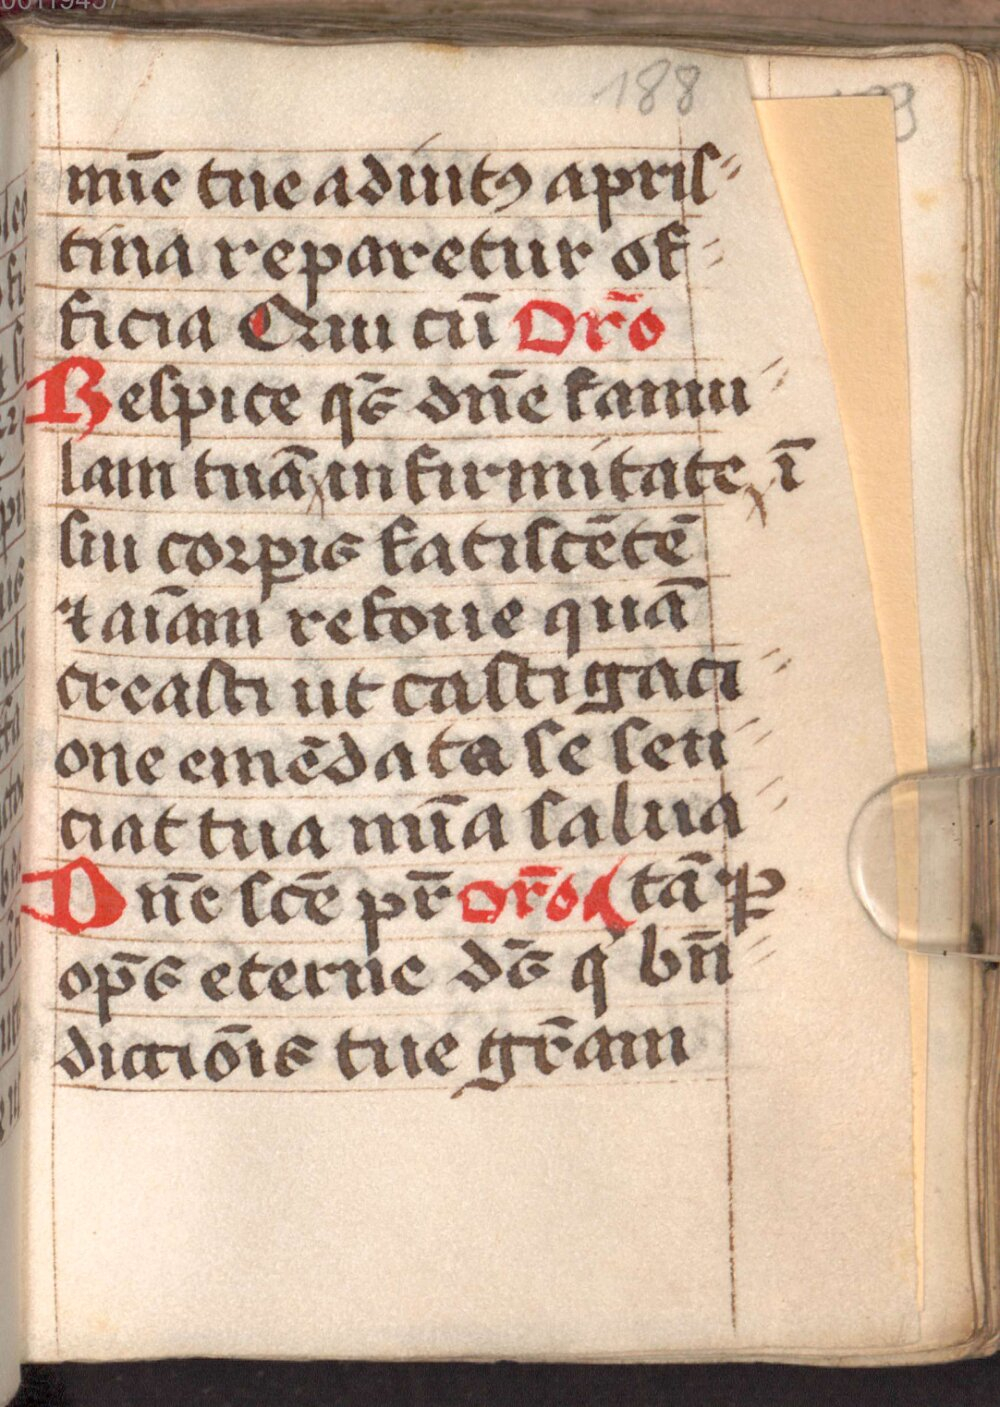 00119457
188
mīe tue adiutꝰ apris-
tina reparetur of-
ficia Qui cū Or̄o
Respice qs̄ dn̄e famu-
lam tuā infirmitate, ī
sui corꝑis fatiscētē
⁊ aīam refoue quā
creasti ut castigaci-
one emēdata se sen-
ciat tua mīa salua-
Dn̄e scē pr̄ or̄o tā ꝑ
op̄s eterne ds̄ q̄ bn̄-
dictiōis tue gr̄am